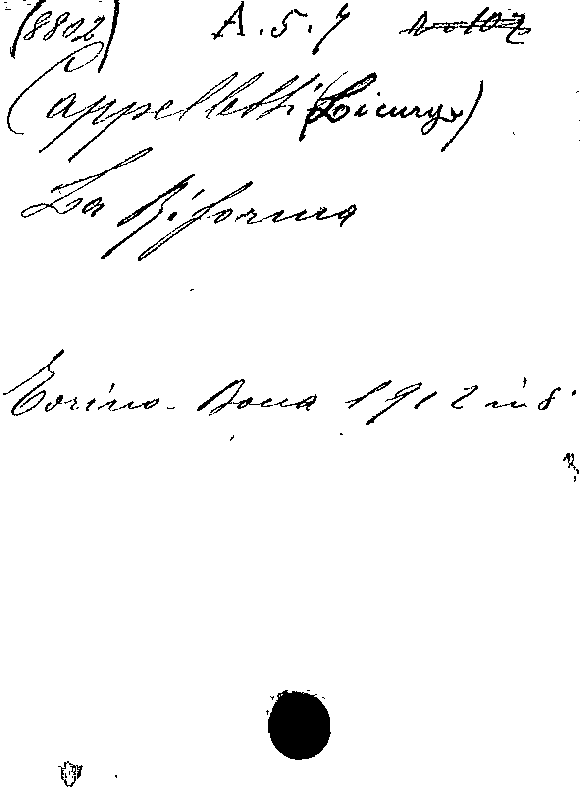 (8802) A.5.7
Cappelletti (Licurgo)
La Riforma
Torino - Bocca 1912 in 8°